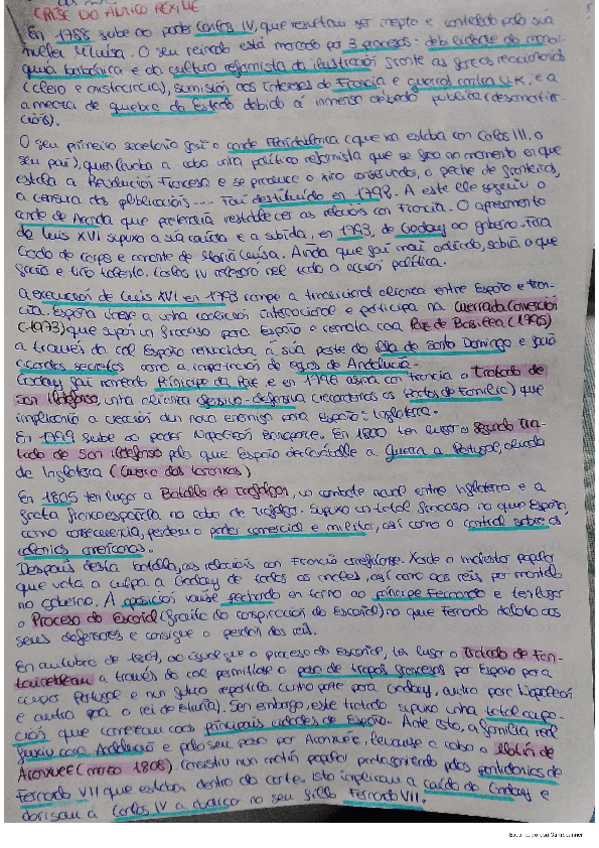 CRISE DO ANTIGO RÉXIME
En 1788 sube ao poder Carlos IV, que resultou ser inepto e controlado pola súa
muller Mª Luisa. O seu reinado está marcado por 3 procesos: debilidade da monar
quía borbónica e da cultura reformista da ilustración fronte as forzas reaccionarias
(clero e aristocracia), sumisión aos intereses de Francia e guerra contra U.K, e a
ameaza de quebra do Estado debido á inmensa débeda pública (desamortiza
cións).
O seu primeiro secretario foi o conde Floridablanca (que xa estaba con Carlos III, o
seu pai), quen levaba a cabo unha política reformista que se freou no momento en que
estala a Revolución Francesa e se produce o xiro conservador, o peche de fronteiras,
a censura das publicacións.... Foi destituído en 1792. A este lle seguiu o
conde de Aranda que pretendía restablecer as relacións con Francia. O apresamento
de Luis XVI supuxo a súa caída e a subida, en 1793, de Godoy ao goberno. Era
Garda de corps e amante de María Luisa. Aínda que foi moi odiado, sabía o que
facía e tiña talento. Carlos IV relegou nel toda a acción política.
A execución de Luis XVI en 1793 rompe a tradicional alianza entre España e Fran-
cia. España únese a unha coalición internacional e participa na Guerra da Convención
(1973) que supón un fracaso para España e remata coa Paz de Basilea (1795)
a través da cal España renunciaba á súa parte da illa de Santo Domingo e facía
acordos secretos como a importación de eguas de Andalucía.
Godoy foi nomeado Príncipe da Paz e en 1796 asina con Francia o Tratado de
San Ildefonso, unha alianza ofensivo-defensiva (recordando os Pactos de Familia) que
implicaría a creación dun novo enemigo para España: Inglaterra.
En 1799 sube ao poder Napoleón Bonaparte. En 1800 ten lugar o segundo Tra-
tado de San Ildefonso polo que España declaráballe a guerra a Portugal, aliada
de Inglaterra (Guerra das Laranxas)
En 1805 ten lugar a Batalla de Trafalgar, un combate naval entre Inglaterra e a
frota francoespañola no cabo de Trafalgar. Supuxo un total fracaso no que España,
como consecuencia, perdeu o poder comercial e militar, así como o control sobre as
colonias americanas.
Despois desta batalla, as relacións con Francia arrefríanse. Xorde o malestar popular
que vota a culpa a Godoy de todos os males, así como aos reis por mantelo
no goberno. A oposición vaise fechando en torno ao príncipe Fernando e ten lugar
o Proceso do Escorial (froito da conspiración do Escorial) no que Fernando delata aos
seus defensores e consigue o perdón dos reis.
En outubro de 1807, ao igual que o proceso do Escorial, ten lugar o Tratado de Fon-
tainebleau a través do cal permitíase o paso de tropas francesas por España para
ocupar Portugal e nun futuro repartila (unha parte para Godoy, outra para Napoleón
e outra para o rei de Etruria). Sen embargo, este tratado supuxo unha total ocupa-
ción que comezou coas principais cidades de España. Ante isto, a familia real
fuxiu cara Andalucía e polo seu paso por Aranxuéz, levouse a cabo o Motín de
Aranxuéz (marzo 1808) consistiu nun motín popular protagonizado polos partidarios de
Fernando VII que estaban dentro da corte. Isto implicou a caída de Godoy e
obrigou a Carlos IV a abdicar no seu fillo Fernando VII.